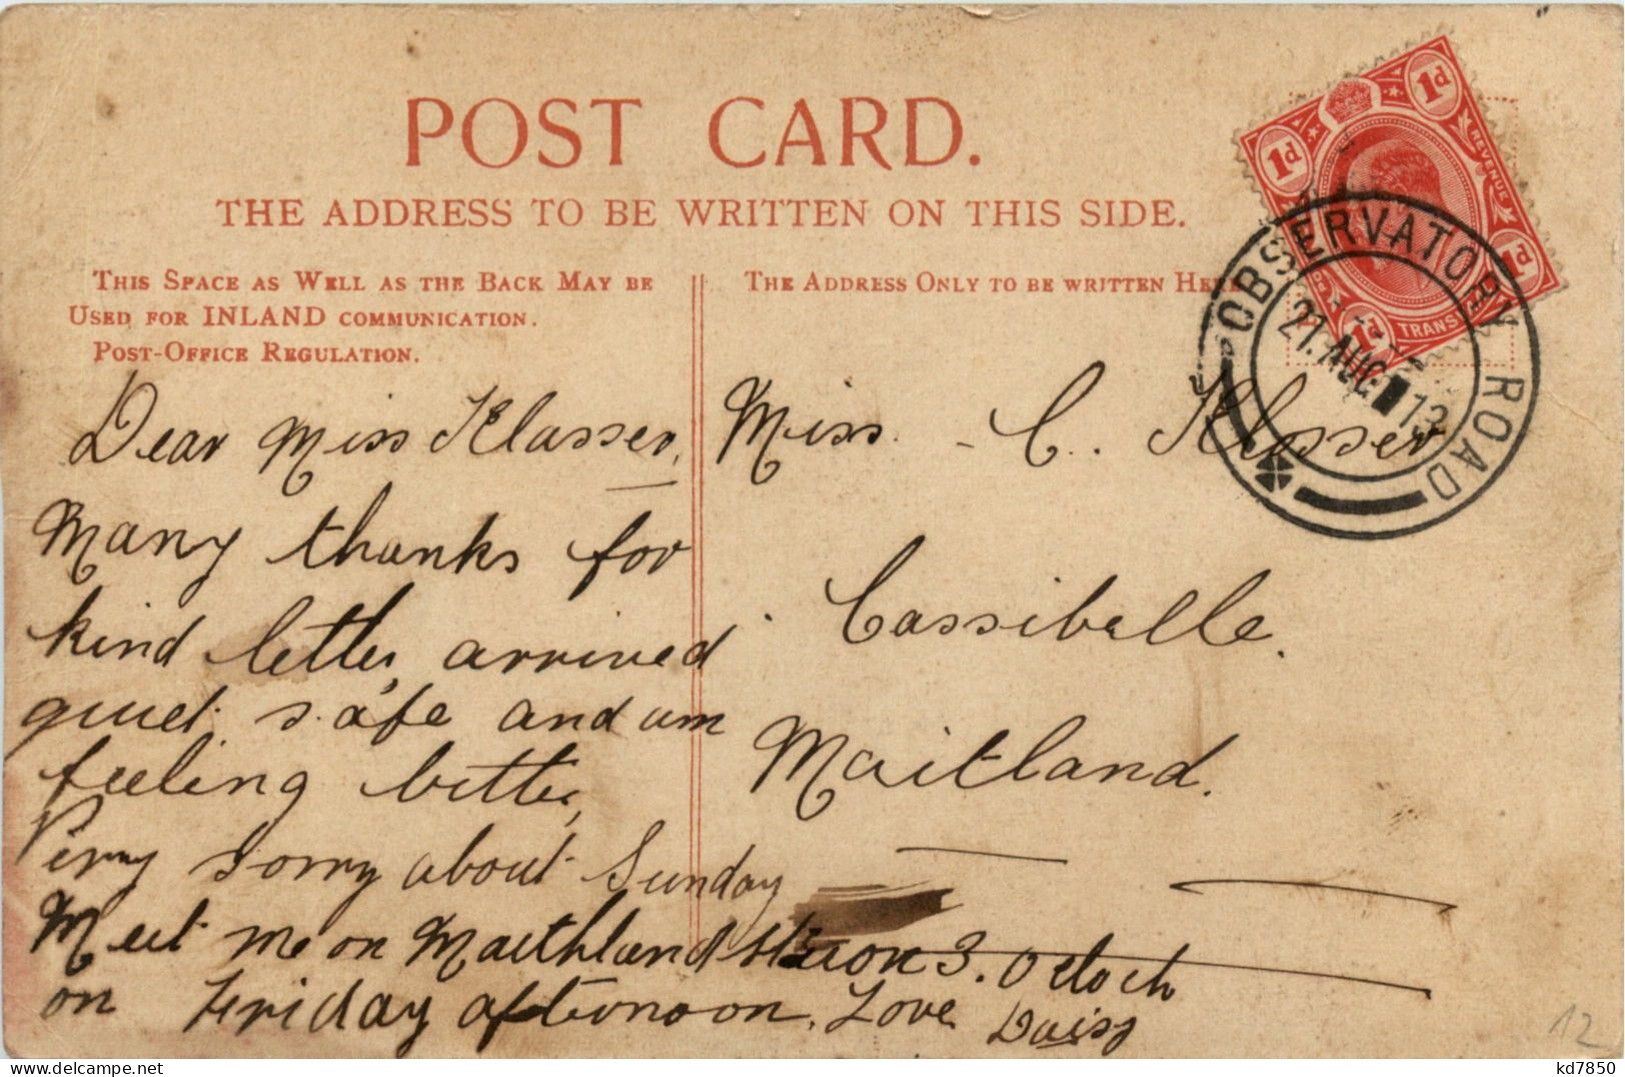 POST CARD.
THE ADDRESS TO BE WRITTEN ON THIS SIDE.
THIS SPACE AS WELL AS THE BACK MAY BE
USED FOR INLAND COMMUNICATION.
POST-OFFICE REGULATION.
THE ADDRESS ONLY TO BE WRITTEN HERE
1d 1d
REVENUE
1d 1d
TRANS
OBSERVATORY ROAD
21. AUG 13
Dear Miss Klasser,
Many thanks for
kind letter, arrived
quiet safe and am
feeling better,
Very sorry about Sunday
Meet me on Maithland station 3. Oclock
on Friday afternoon. Love Daisy
Miss. C. Klosser
Cassibelle.
Maitland.
12
kd7850